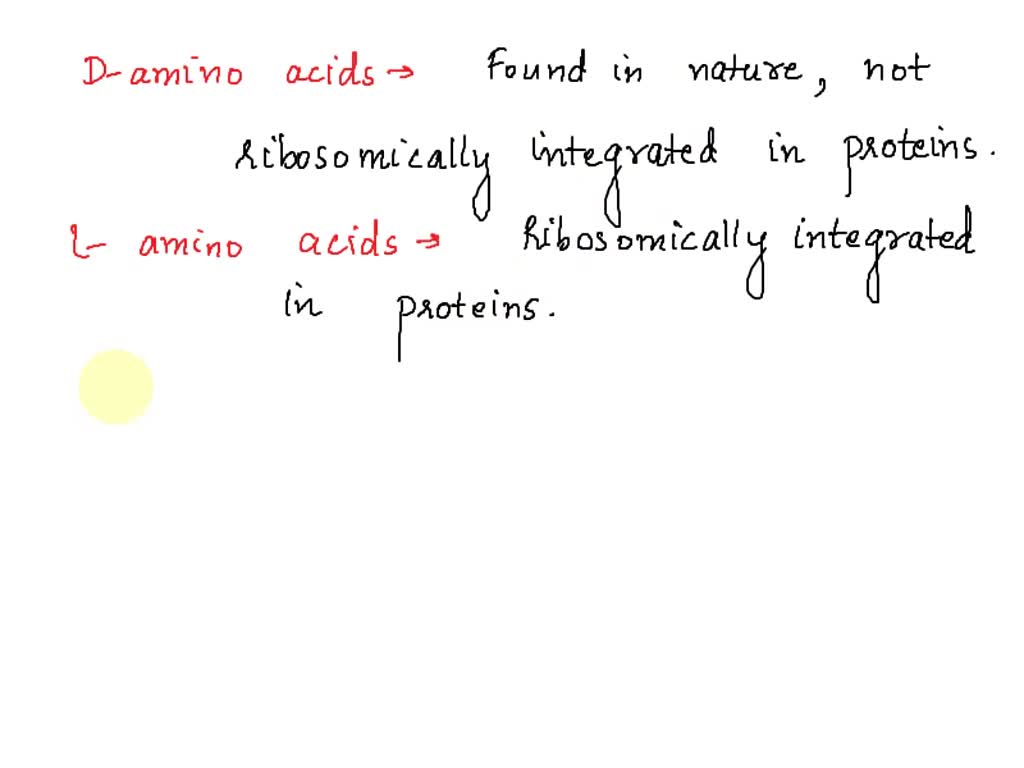 D-amino acids → Found in nature, not
ribosomically integrated in proteins.
L- amino acids → Ribosomically integrated
in proteins.